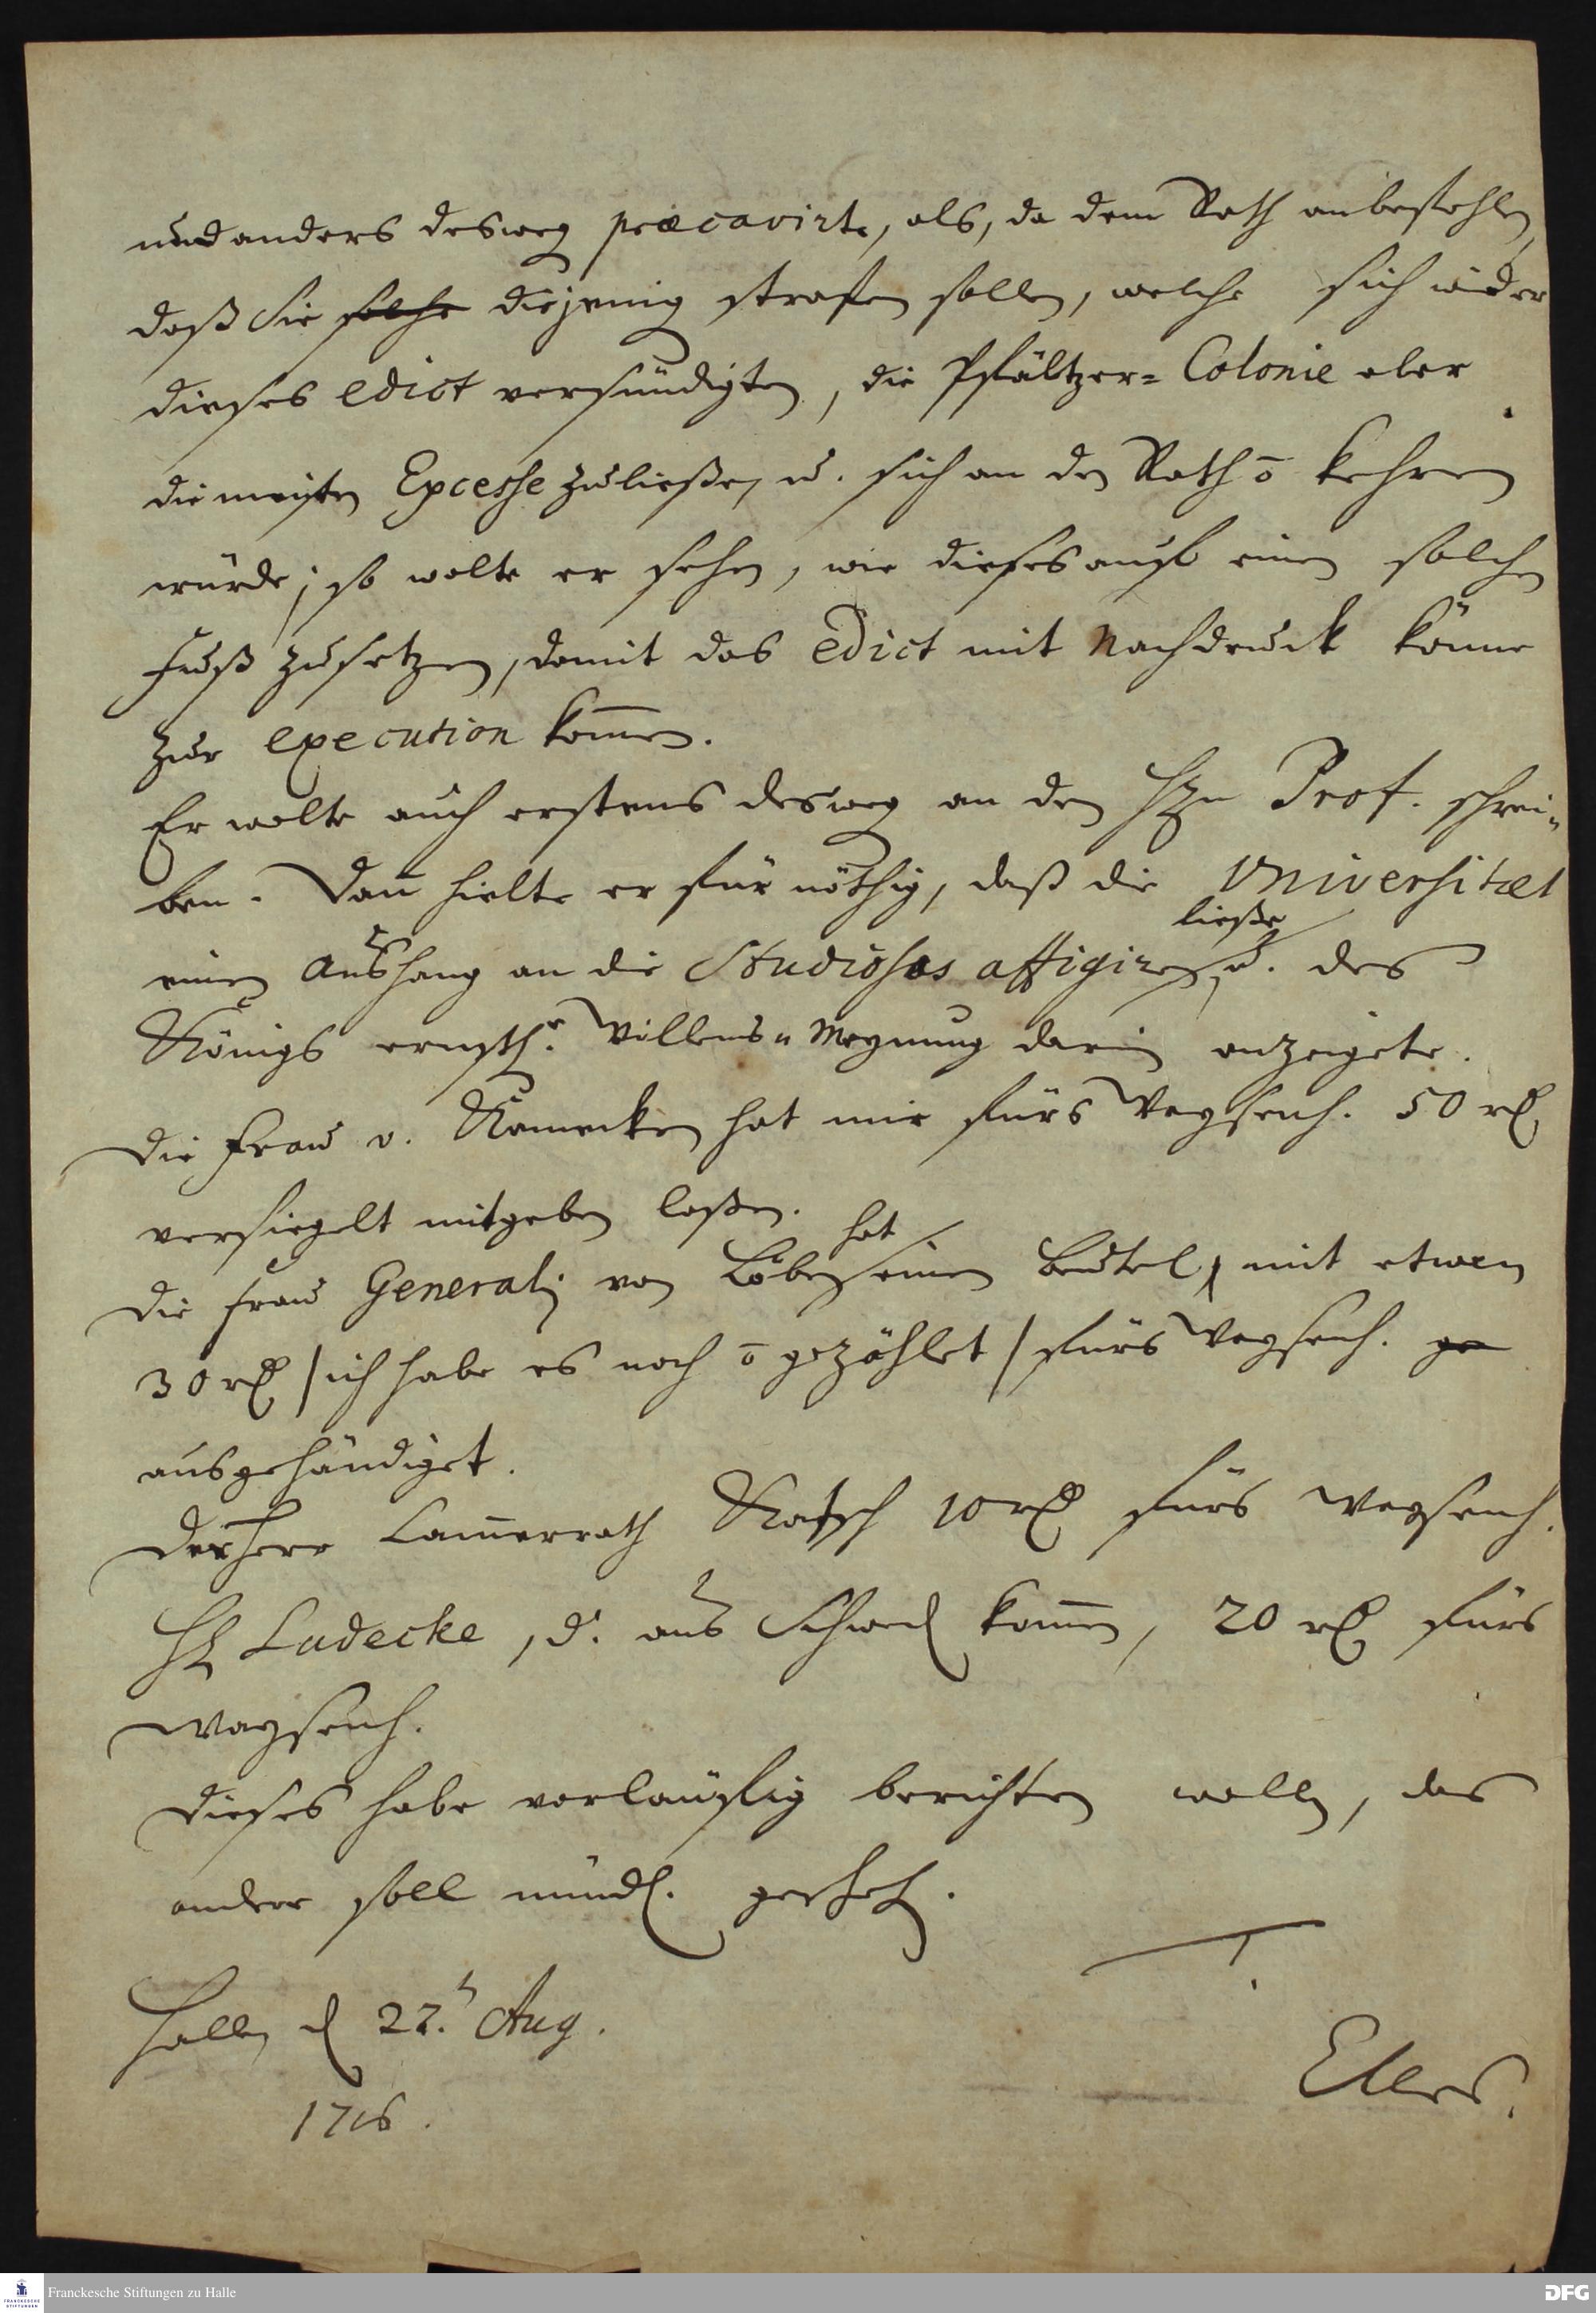 und anders desweg præcavirte, als, da dem Rath anbefohlen,
daß Sie solche diejenig strafen sollen, welche sich wider
dieses edict versündigten, die Pfältzer= Colonie aber
die meisten Excesse zuließen, u. sich an den Rath õ kehren
würde; so wolte er sehen, wie dieses auf einen solchen
Fuß zusetzen, damit das edict mit Nachdruck könne
zur execution kom̅en.
Er wolte auch erstens desweg an den Hrn Prof. schrei=
ben. Dan̅ hielte er für nöthig, daß die Universitæt
ließe
einen Aushang an die Studiosos affigiren, u. des
Königs ernstl. Willens= Meynung darin anzeigete.
Die Frau v. Kamecken hat mir fürs Waysenh. 50 rl
versiegelt mitgeben laßen.
hat
Die Frau Generalj von Löben einen Beutel, mit etwan
30 rl /ich habe es noch õ gezählet/ fürs Waysenh. ge
ausgehändiget.
Der Herr Cam̅errath Katsch 10 rl fürs Waysenh.
H. Ludecke, d. aus Schwed kom̅en, 20 rl fürs
Waysenh.
Dieses habe vorläuffig berichten wollen, das
andere soll mündl. geschehen.
Halle, d 22. Aug.
1716.
Elers.
Franckesche Stiftungen zu Halle
DFG